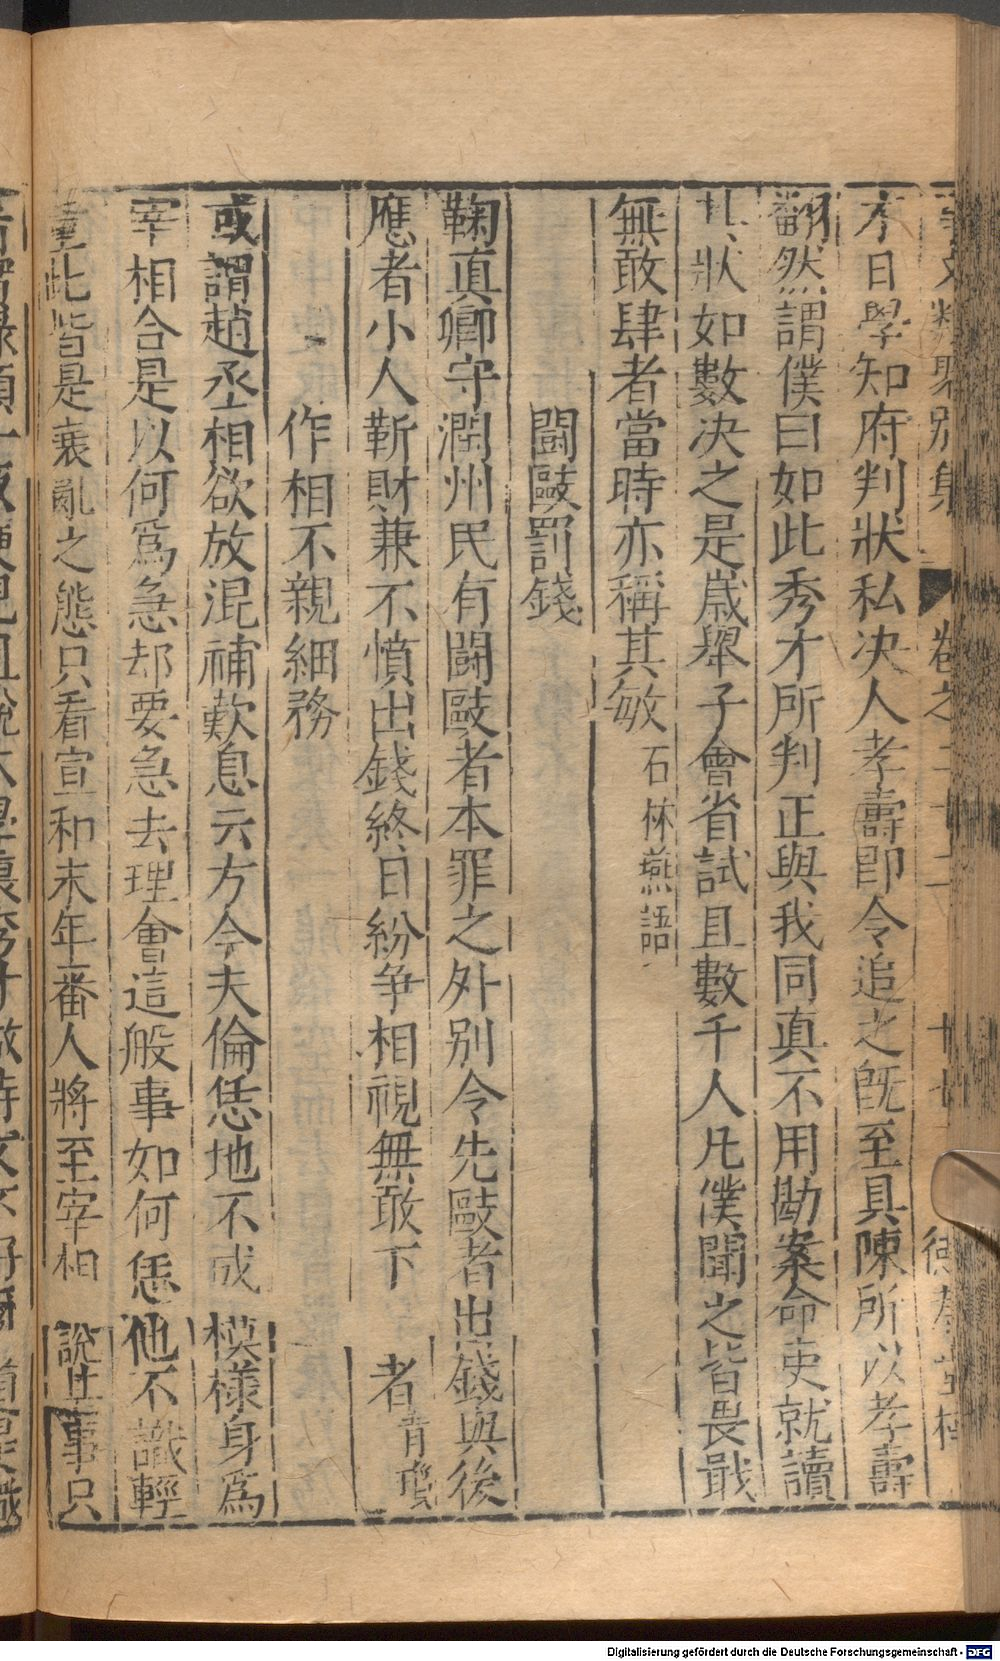 事文類聚別集 卷之二十二 廿七 德壽堂梓
才日學知府判狀私决人孝壽即令追之旣至具陳所以孝壽
翻然謂僕曰如此秀才所判正與我同真不用勘案命吏就讀
其狀如數决之是歲舉子會省試且數千人凡僕聞之皆畏戢
無敢肆者當時亦稱其敏 石林燕語
鬪毆罰錢
鞠真卿守潤州民有鬪毆者本罪之外别令先毆者出錢與後
應者小人靳財兼不憤出錢終日紛争相視無敢下 者 青瑣
作相不親細務
或謂趙丞相欲放混補歎息云方今大倫恁地不成 模樣身爲
宰相合是以何爲急却要急去理會這般事如何恁他不識輕
重此皆是衰亂之態只看宣和末年番人將至宰相 說甚事只
Digitalisierung gefördert durch die Deutsche Forschungsgemeinschaft - DFG